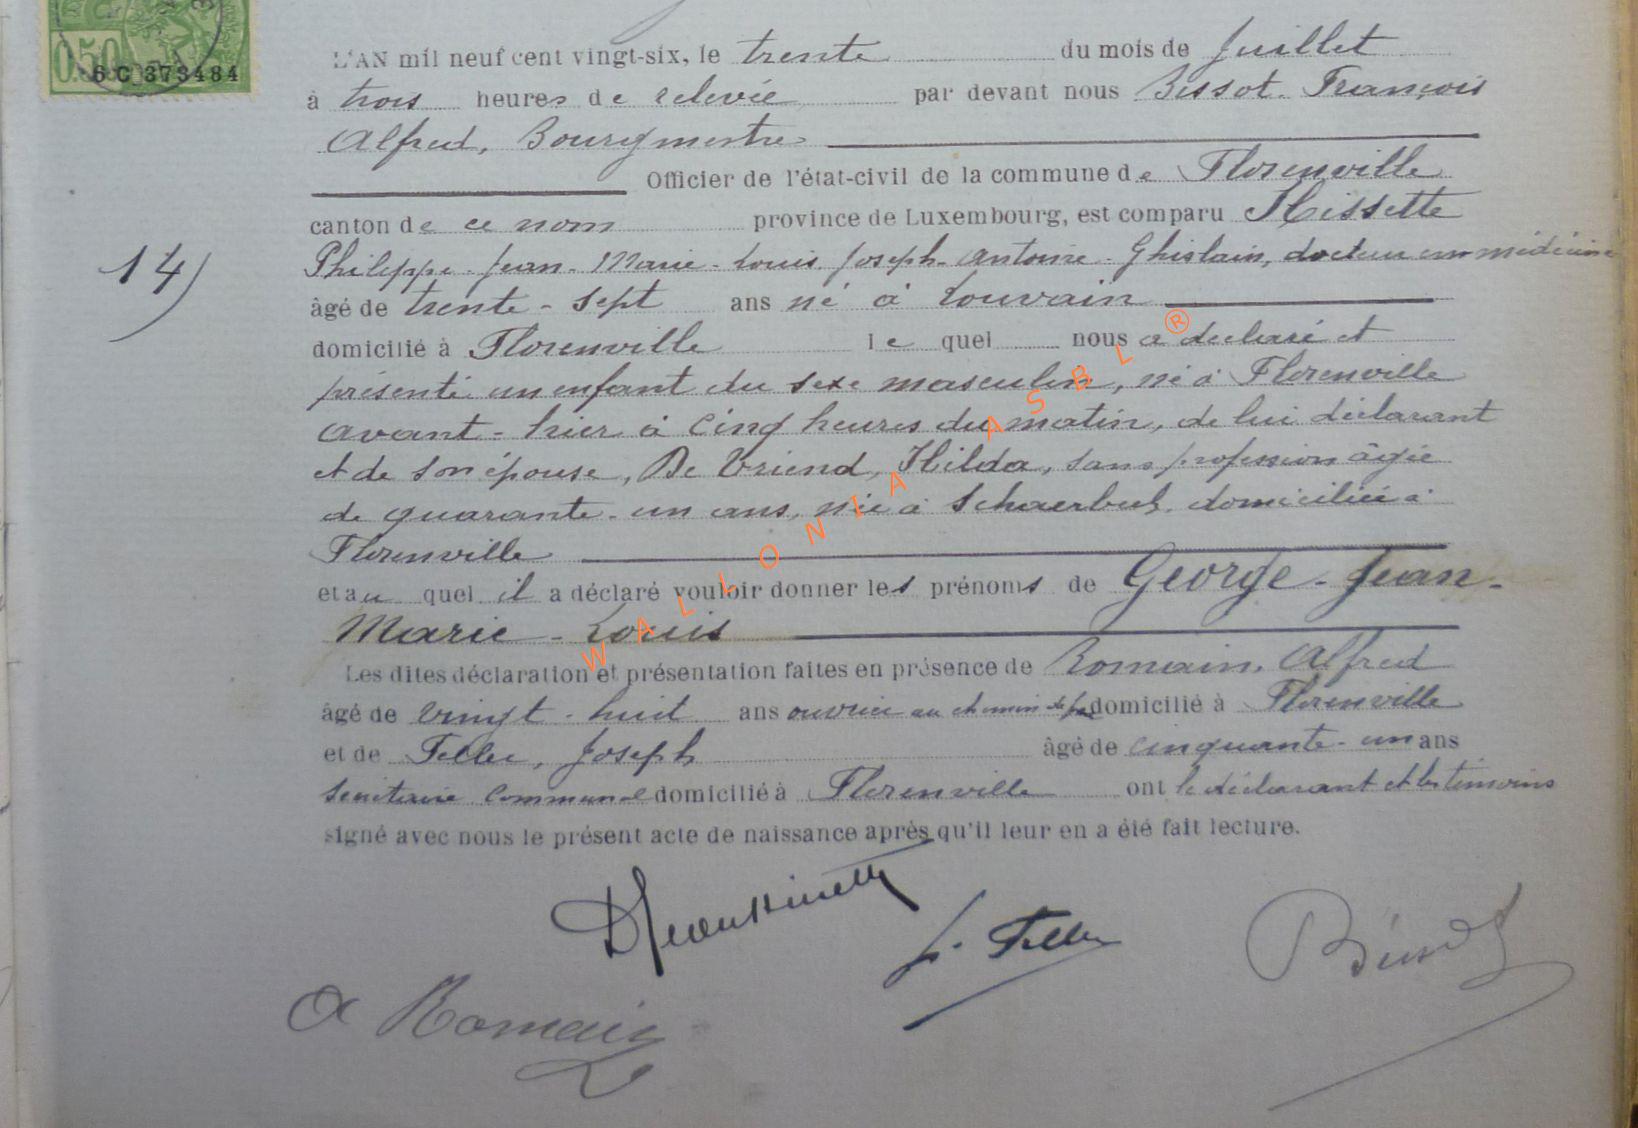 0.50
6 C 373484
L'AN mil neuf cent vingt-six, le trente du mois de Juillet
à trois heures de relevée par devant nous Bissot François
Alfred, Bourgmestre
Officier de l'état-civil de la commune de Florenville
canton de ce nom province de Luxembourg, est comparu Hissette
14) Philippe-Jean-Marie-Louis Joseph-Antoine-Ghislain, docteur en médecine
âgé de trente-sept ans né à Louvain
domicilié à Florenville le quel nous a déclaré et
présenté un enfant du sexe masculin, né à Florenville
avant-hier à cinq heures du matin, de lui déclarant
et de son épouse, De Vriend, Hilda, sans profession âgée
de quarante-un ans, née à Schaerbeek, domiciliée à
Florenville
et au quel il a déclaré vouloir donner les prénoms de George-Jean-
Marie-Louis
Les dites déclaration et présentation faites en présence de Romain, Alfred
âgé de vingt-huit ans ouvrier au chemin de fer domicilié à Florenville
et de Feller, Joseph âgé de cinquante-un ans
secrétaire communal domicilié à Florenville ont le déclarant et les témoins
signé avec nous le présent acte de naissance après qu'il leur en a été fait lecture.
J. Feller
A Romain
WALLONIA ASBL ®